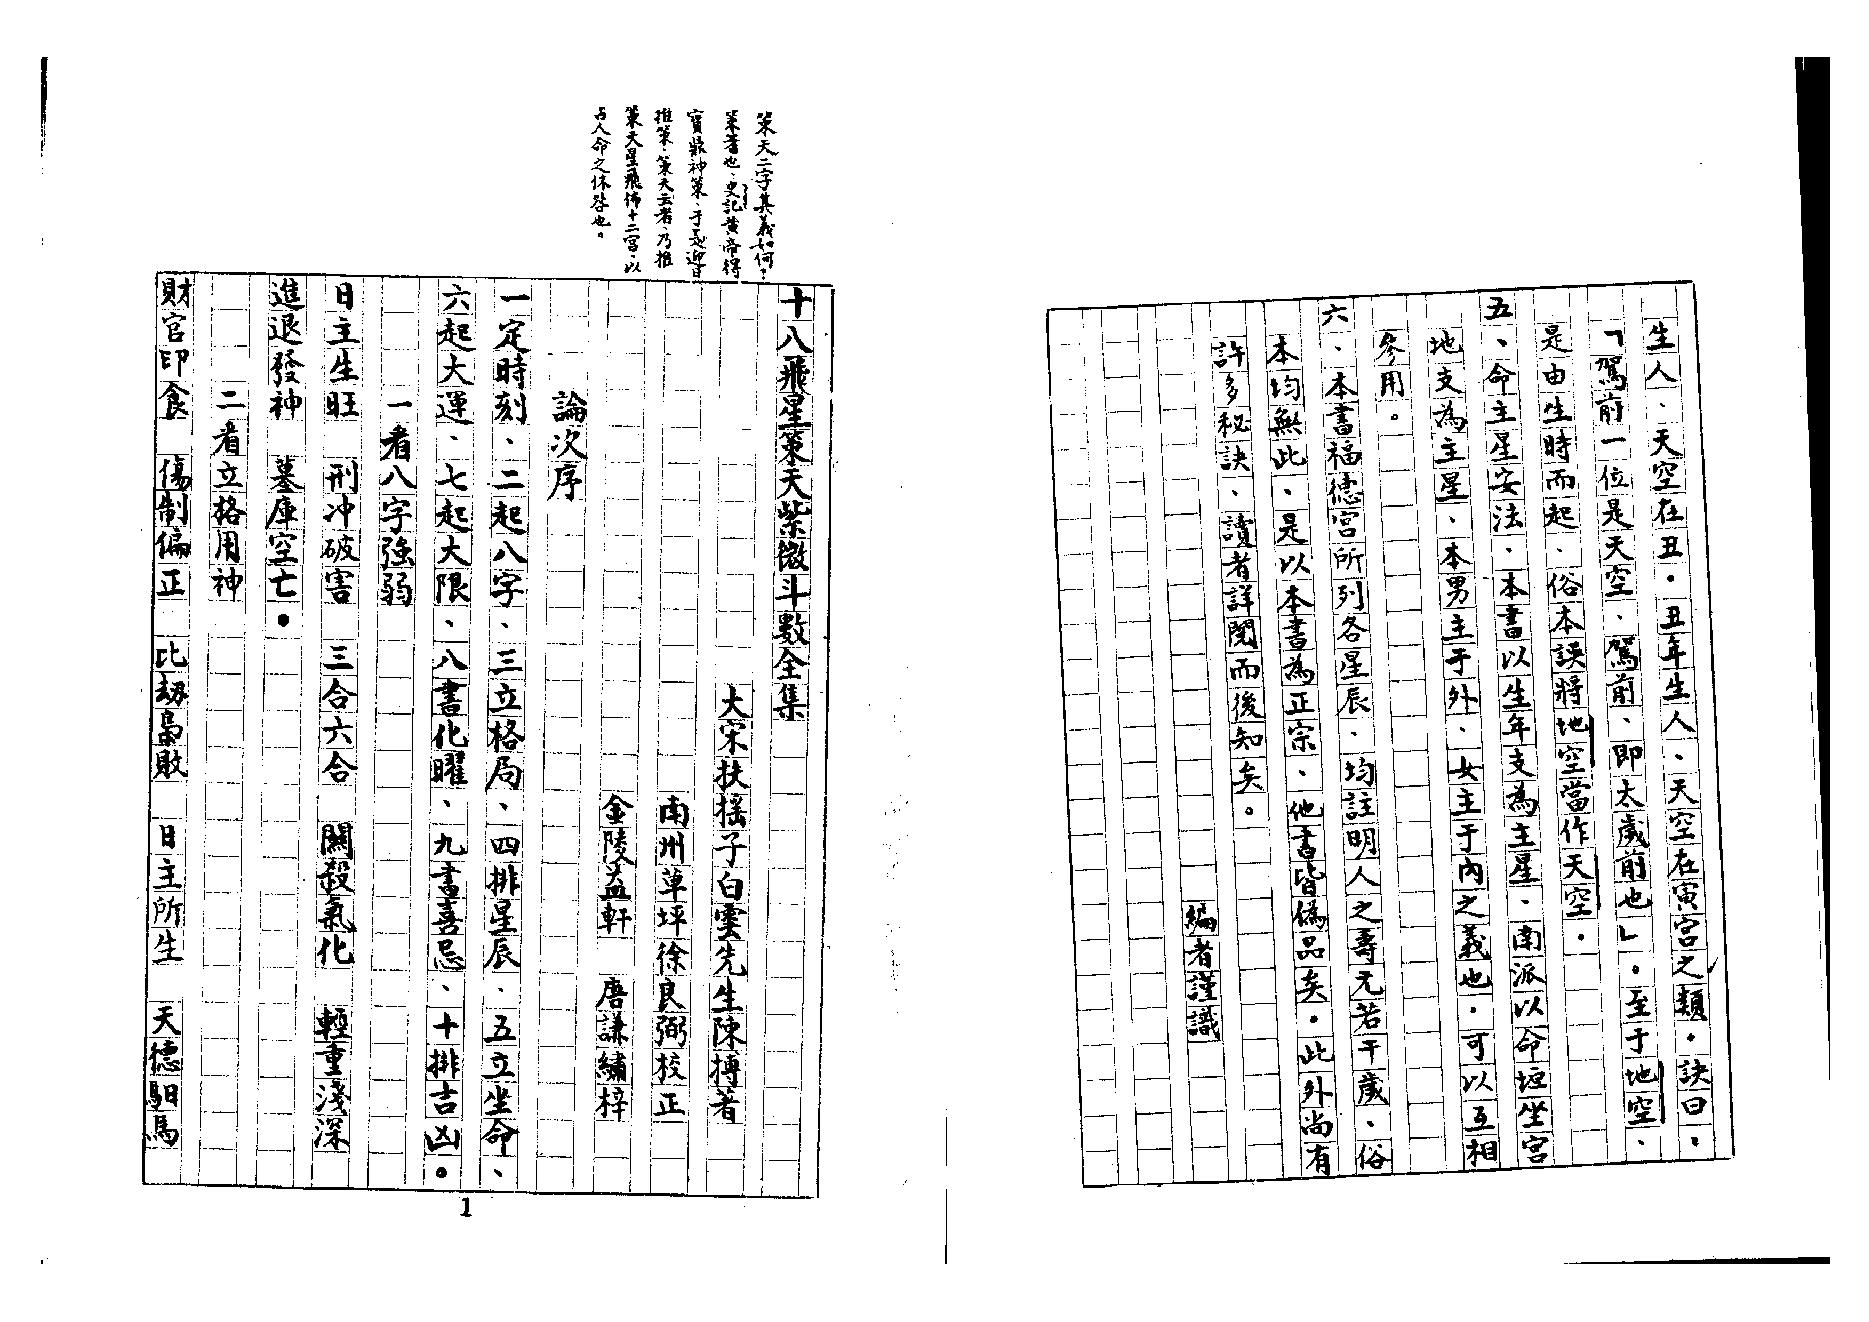 生人、天空在丑。丑年生人、天空在寅宮之類。訣曰：
「駕前一位是天空、駕前、即太歲前也」。至于地空、
是由生時而起、俗本誤將地空當作天空。
五、命主星安法、本書以生年支為主星、南派以命垣坐宮
地支為主星、本男主于外、女主于內之義也。可以互相
參用。
六、本書福德宮所列各星辰、均註明人之壽元若干歲、俗
本均無此、是以本書為正宗、他書皆偽品矣。此外尚有
許多秘訣、讀者詳閱而後知矣。
編者謹識
策天二字其義如何？
策蓍也、史記黃帝得
寶鼎神策、于是迎日
推策、策天云者、乃推
策天星飛佈十二宮、以
占人命之休咎也。
十八飛星策天紫微斗數全集
大宋扶搖子白雲先生陳摶著
南州草坪徐良弼校正
金陵益軒 唐謙繡梓
論次序
一定時刻、二起八字、三立格局、四排星辰、五立坐命、
六起大運、七起大限、八書化曜、九書喜忌、十排吉凶。
一看八字強弱
日主生旺 刑冲破害 三合六合 關殺氣化 輕重淺深
進退發神 墓庫空亡。
二看立格用神
財官印食 傷制偏正 比劫梟敗 日主所生 天德馹馬
1